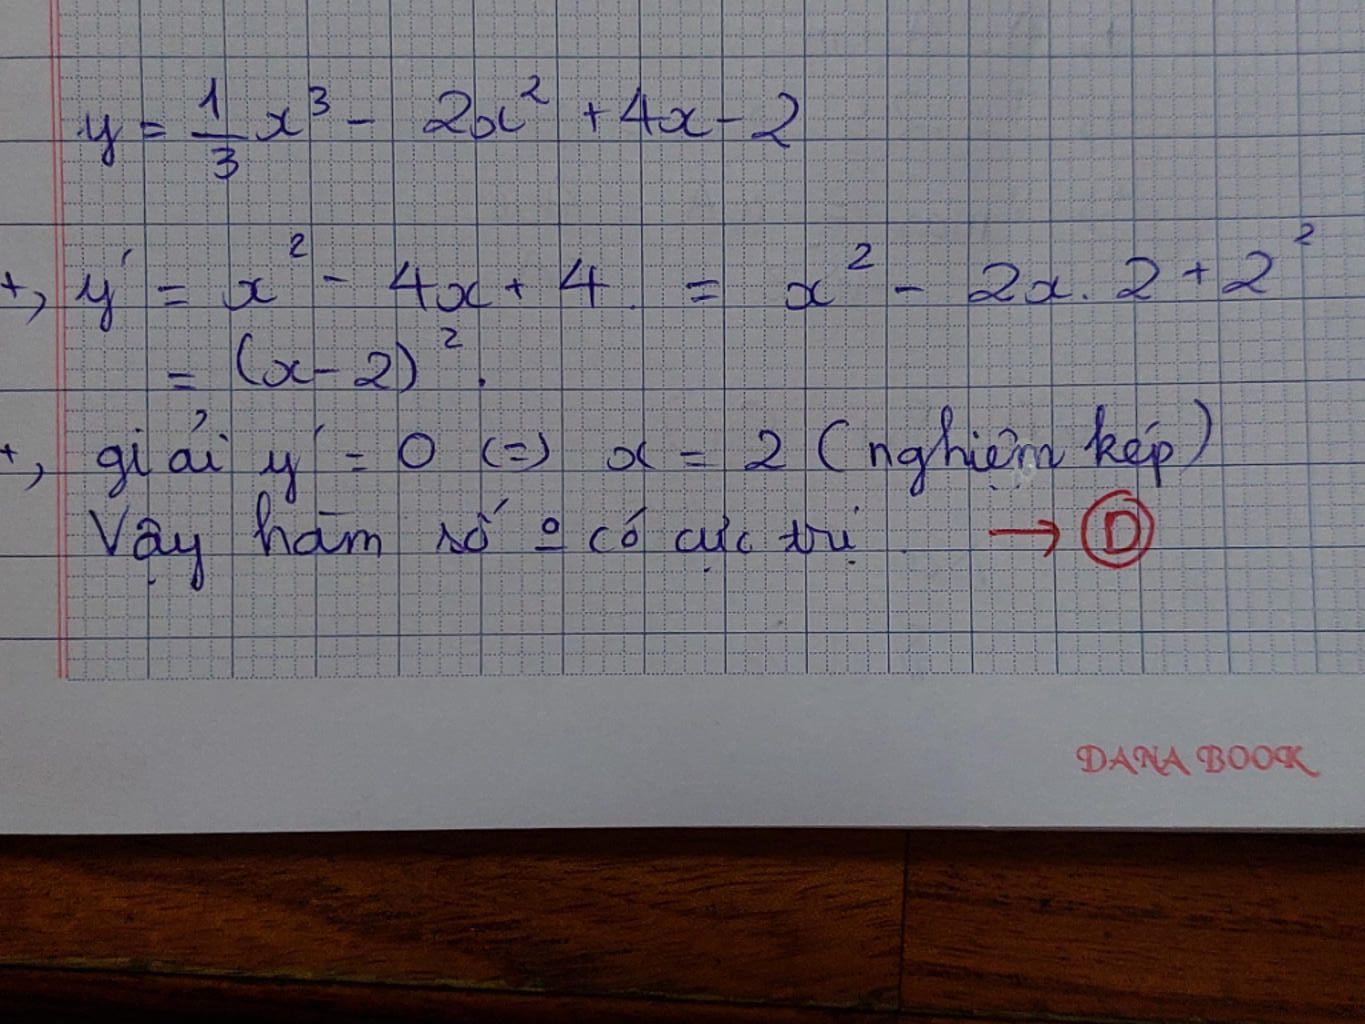 y = 1/3 x³ - 2x² + 4x - 2
+, y' = x² - 4x + 4. = x² - 2x. 2 + 2²
= (x - 2)².
+, giải y' = 0 (=) x = 2 (nghiệm kép)
Vậy hàm số º có cực trị. → D
DANA BOOK